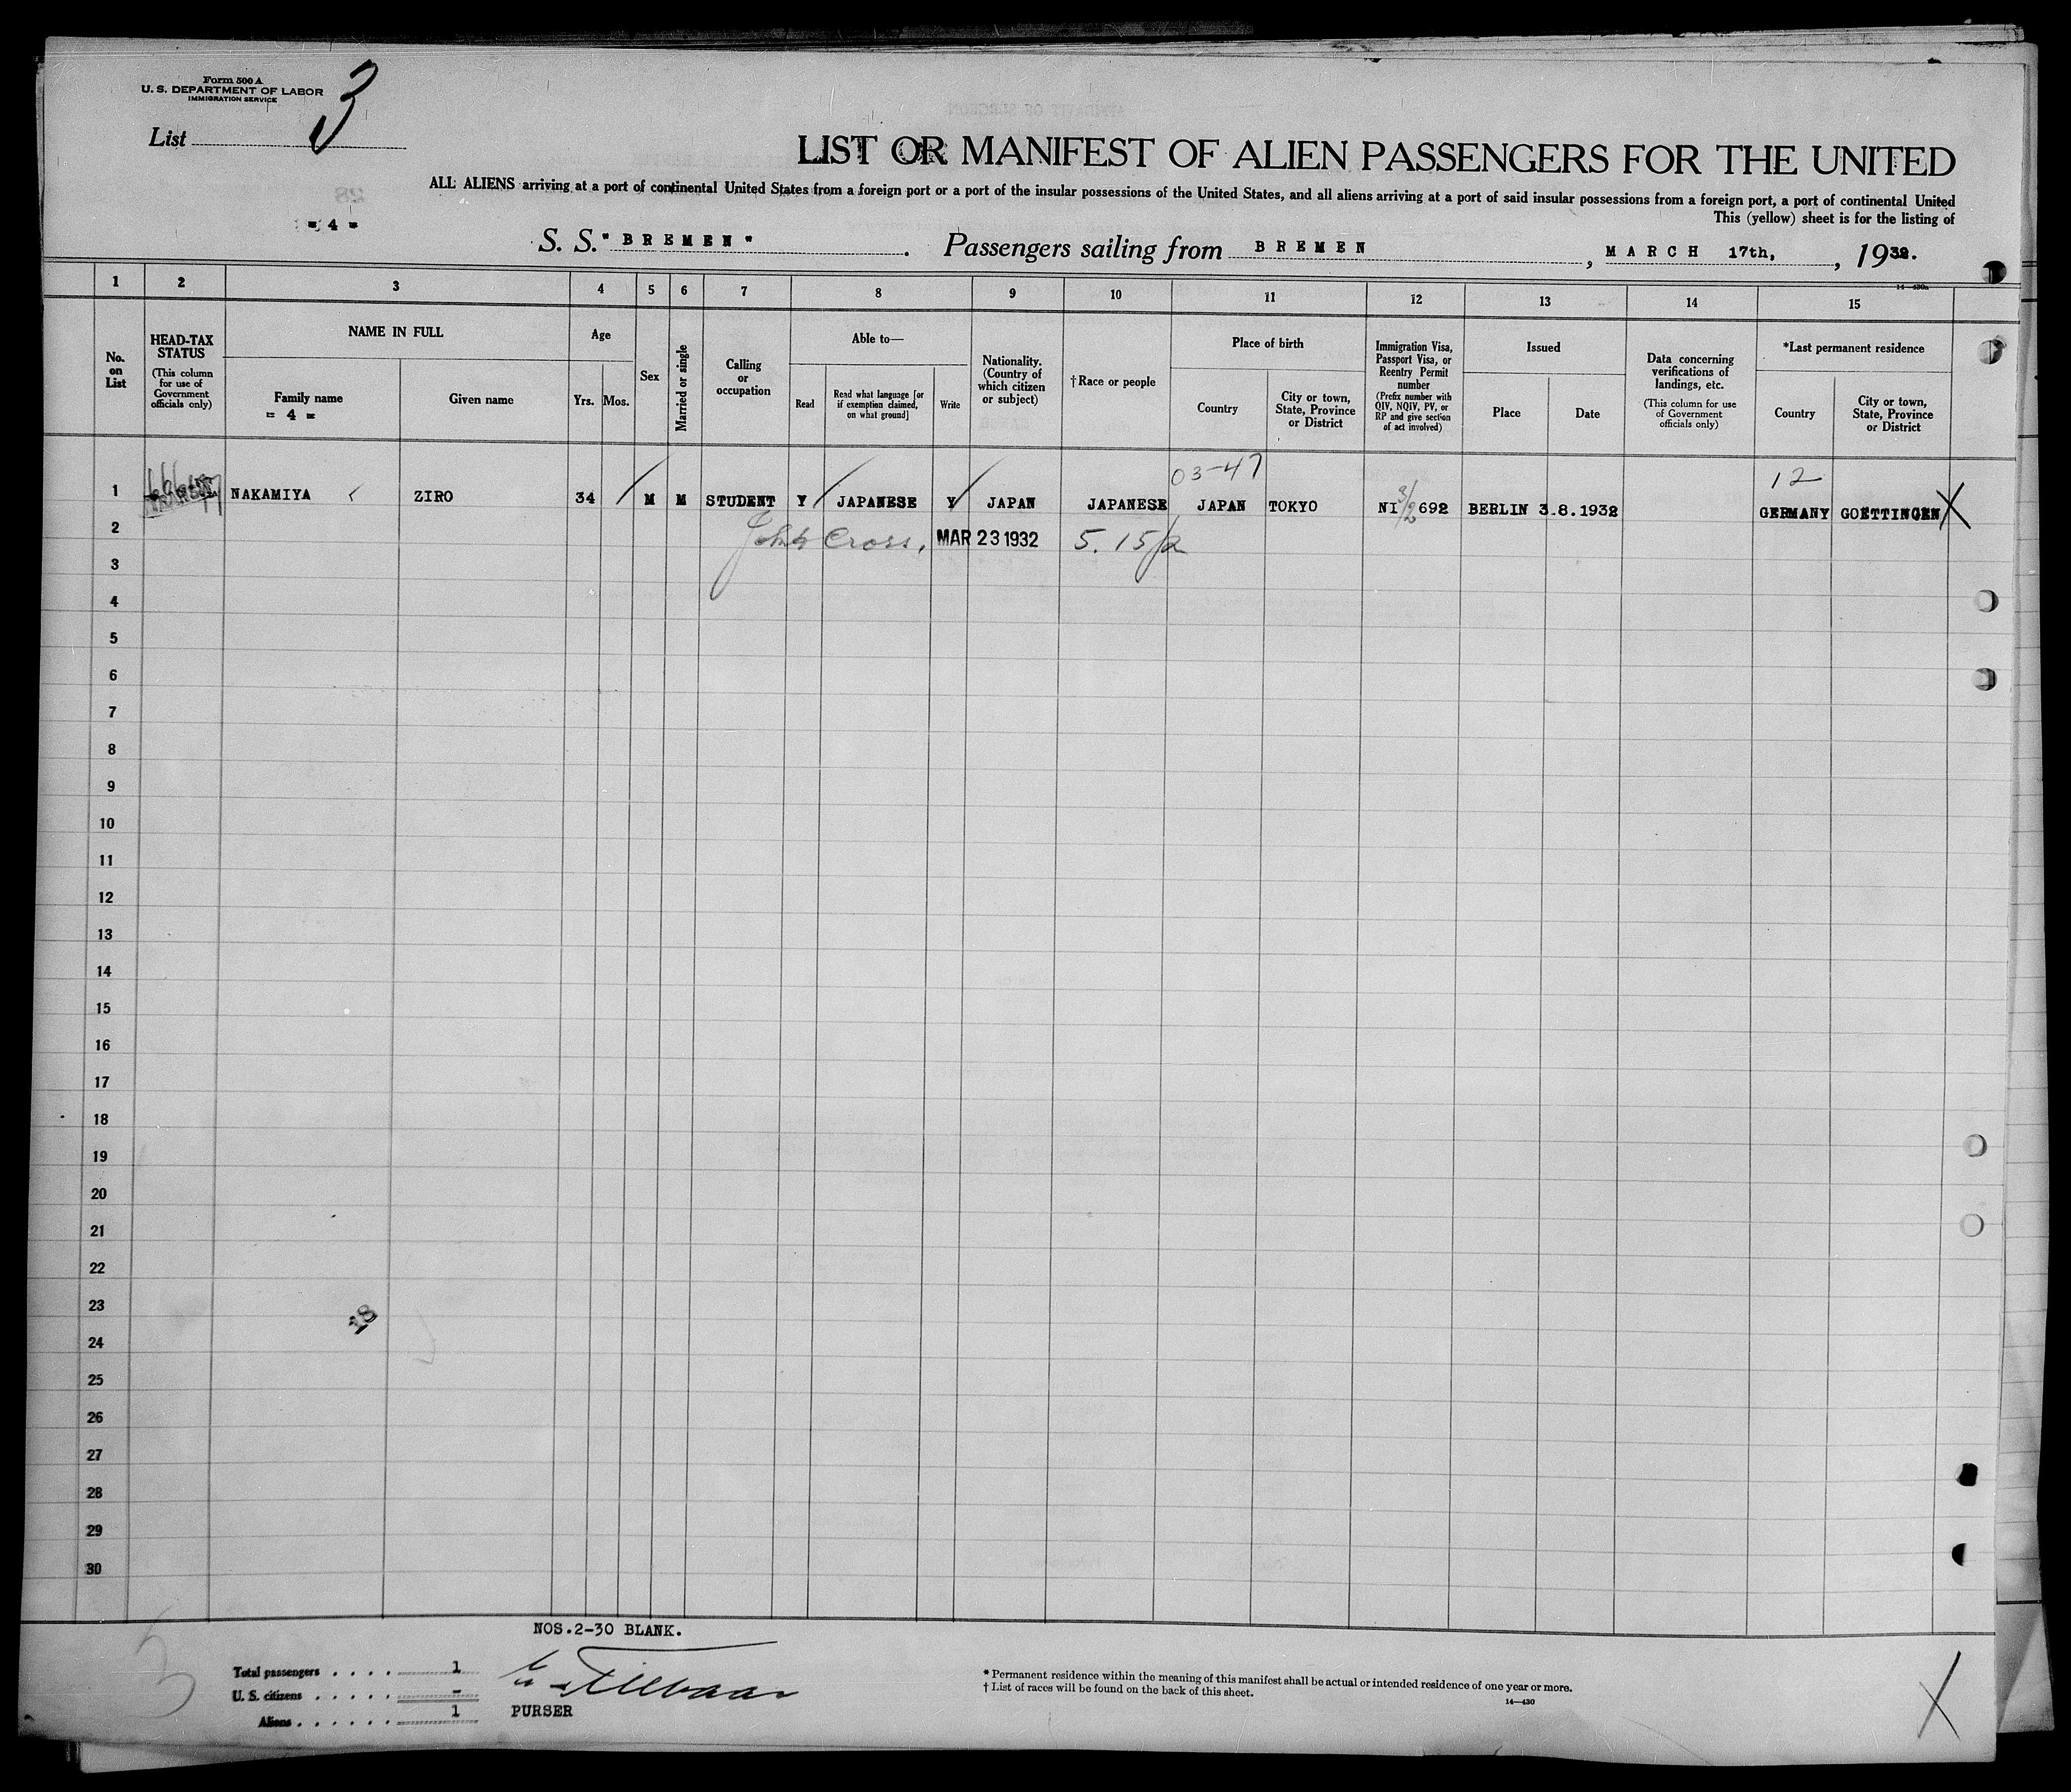 Form 500 A
U. S. DEPARTMENT OF LABOR
IMMIGRATION SERVICE
List 3
LIST OR MANIFEST OF ALIEN PASSENGERS FOR THE UNITED
ALL ALIENS arriving at a port of continental United States from a foreign port or a port of the insular possessions of the United States, and all aliens arriving at a port of said insular possessions from a foreign port, a port of continental United
This (yellow) sheet is for the listing of
= 4 =
S. S. "BREMEN". Passengers sailing from BREMEN, MARCH 17th, 1932.
14—430a
1 2 3 4 5 6 7 8 9 10 11 12 13 14 15
No. on List
HEAD-TAX STATUS
(This column for use of Government officials only)
NAME IN FULL
Family name
= 4 =
Given name
Age
Yrs. Mos.
Sex
Married or single
Calling or occupation
Able to—
Read
Read what language [or if exemption claimed, on what ground]
Write
Nationality. (Country of which citizen or subject)
†Race or people
Place of birth
Country
City or town, State, Province or District
Immigration Visa, Passport Visa, or Reentry Permit number
(Prefix number with QIV, NQIV, PV, or RP and give section of act involved)
Issued
Place
Date
Data concerning verifications of landings, etc.
(This column for use of Government officials only)
*Last permanent residence
Country
City or town, State, Province or District
03-47
12
1 NAKAMIYA ZIRO 34 M M STUDENT Y JAPANESE Y JAPAN JAPANESE JAPAN TOKYO NI 3/2 692 BERLIN 3.8.1932 GERMANY GOETTINGEN X
2 Cross, MAR 23 1932 5. 15/2
3
4
5
6
7
8
9
10
11
12
13
14
15
16
17
18
19
20
21
22
23
24
25
26
27
28
29
30
NOS.2-30 BLANK.
Total passengers . . . . 1
U. S. citizens . . . . . -
Aliens . . . . . . 1
PURSER
* Permanent residence within the meaning of this manifest shall be actual or intended residence of one year or more.
† List of races will be found on the back of this sheet.
14—430
3
X